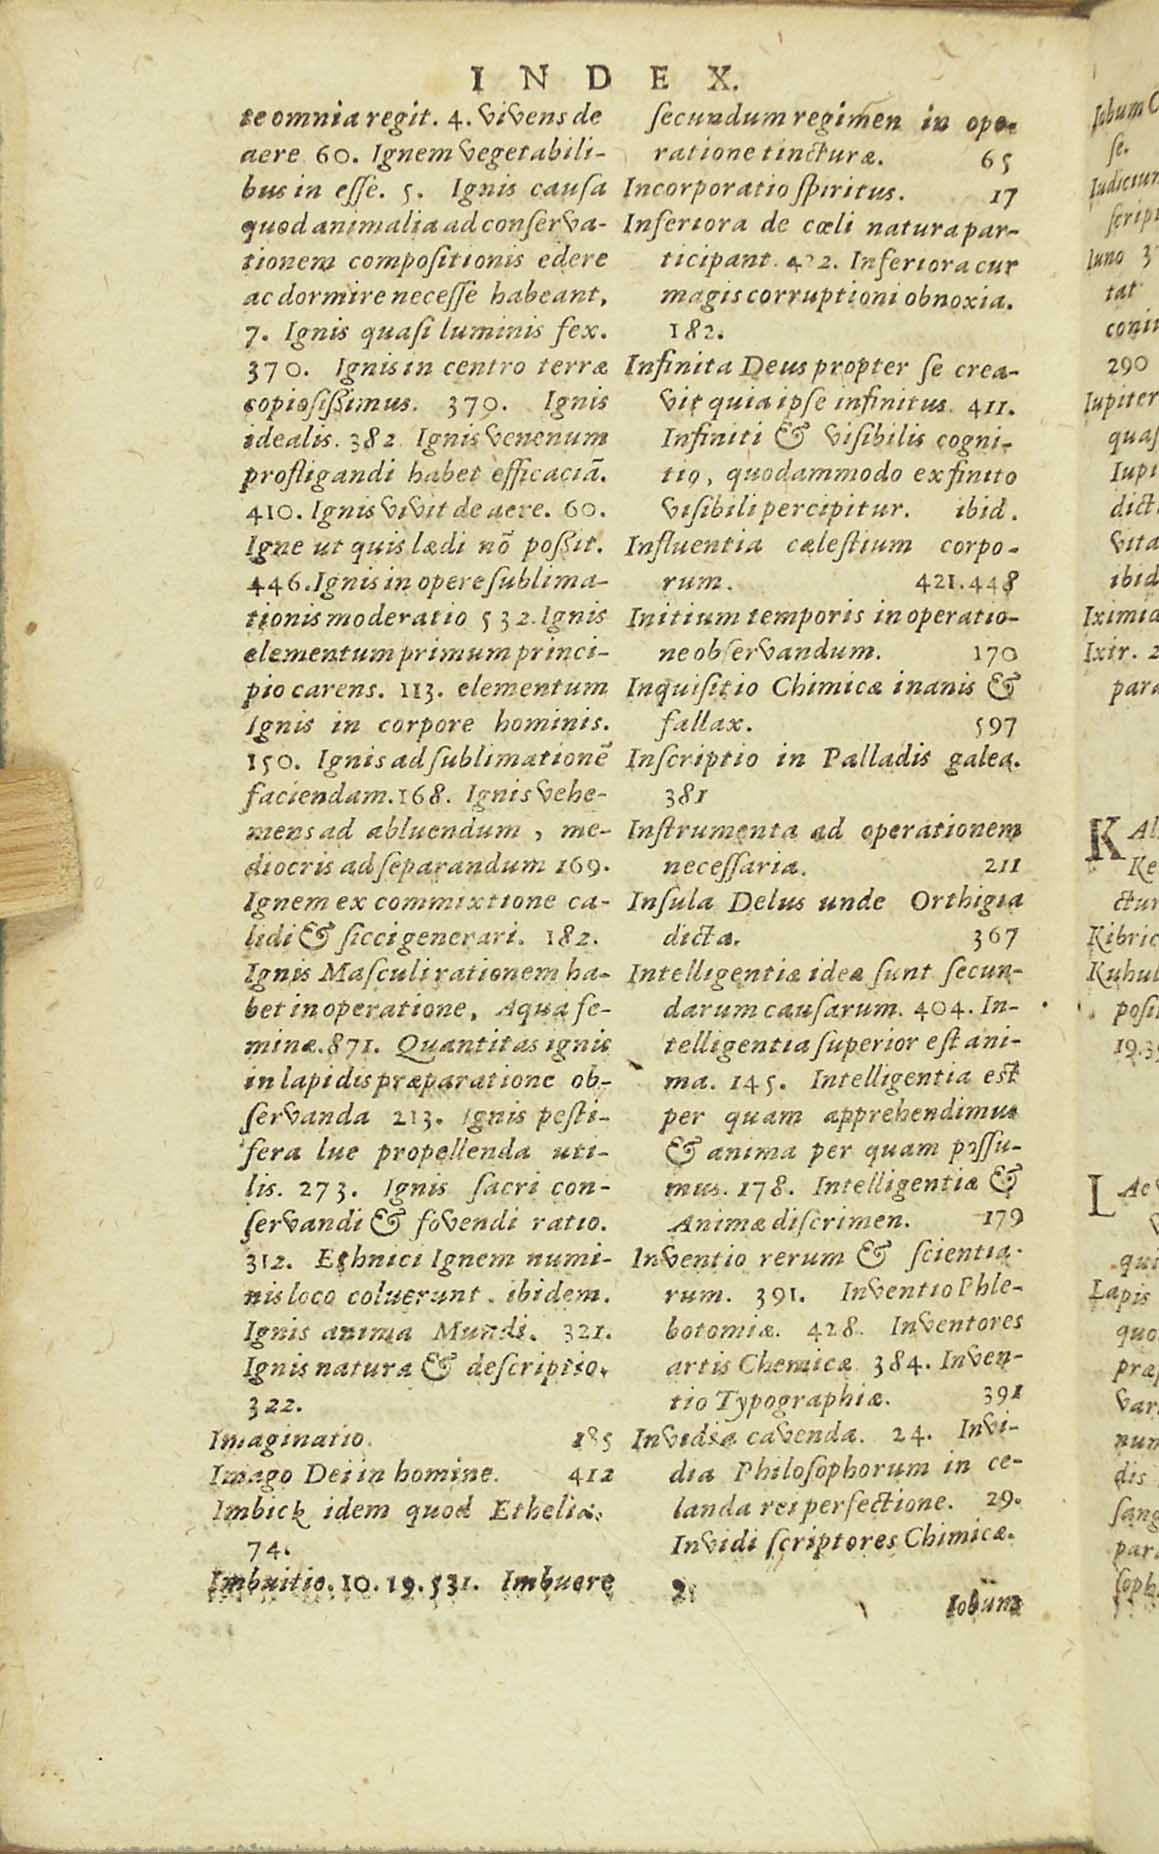 INDEX.
te omnia regit. 4. vivens de
aere 60. Ignem vegetabili-
bus in esse. 5. Ignis causa
quod animalia ad conserva-
tionem compositionis edere
ac dormire necesse habeant,
7. Ignis quasi luminis fex.
370. Ignis in centro terræ
copiosissimus. 370. Ignis
idealis. 382 Ignis venenum
profligandi habet efficaciã.
410. Ignis vivit de aere. 60.
Igne ut quis lædi nõ possit.
446. Ignis in opere sublima-
tionis moderatio 532. Ignis
elementum primum princi-
pio carens. 113. elementum
Ignis in corpore hominis.
150. Ignis ad sublimationẽ
faciendam. 168. Ignis vehe-
mens ad abluendum, me-
diocris ad separandum 169.
Ignem ex commixtione ca-
lidi & sicci generari. 182.
Ignis Masculi rationem ha-
bet in operatione, Aqua fe-
minæ. 871. Quantitas ignis
in lapidis præparatione ob-
servanda 213. Ignis pesti-
fera lue propellenda uti-
lis. 273. Ignis sacri con-
servandi & fovendi ratio.
312. Ethnici Ignem numi-
nis loco coluerunt. ibidem.
Ignis anima Mundi. 321.
Ignis natura & descriptio.
322.
Imaginatio. 185
Imago Dei in homine. 412
Imbick idem quod Ethelia.
74.
Imbuitio. 10. 19. 531. Imbuere
secundum regimen in ope-
ratione tincturæ. 65
Incorporatio spiritus. 17
Inferiora de cœli natura par-
ticipant. 422. Inferiora cur
magis corruptioni obnoxia.
182.
Infinita Deus propter se crea-
vit quia ipse infinitus. 411.
Infiniti & visibilis cogni-
tio, quodammodo ex finito
visibili percipitur. ibid.
Influentia cælestium corpo-
rum. 421. 448
Initium temporis in operatio-
ne observandum. 170
Inquisitio Chimicæ inanis &
fallax. 597
Inscriptio in Palladis galea.
381
Instrumenta ad operationem
necessaria. 211
Insula Delus unde Orthigia
dicta. 367
Intelligentiæ ideæ sunt secun-
darum causarum. 404. In-
telligentia superior est ani-
ma. 145. Intelligentia est
per quam apprehendimus
& anima per quam possu-
mus. 178. Intelligentiæ &
Animæ discrimen. 179
Inventio rerum & scientia-
rum. 391. Inventio Phle-
botomiæ. 428. Inventores
artis Chemicæ 384. Inven-
tio Typographiæ. 391
Invidia cavenda. 24. Invi-
dia Philosophorum in ce-
landa rei perfectione. 29.
Invidi scriptores Chimicæ.
2.
Iobum
Iobum
se.
Iudicium
script
Iuno 3
tat
coniu
290
Iupiter
quas
Iupi
dict
vita
ibid
Iximid
Ixir. 2
para
KAl
Ke
ctur
Kibric
Kuhul
posit
19.
LAc
qui
Lapis
quo
præp
vari
num
dis
sang
para
soph